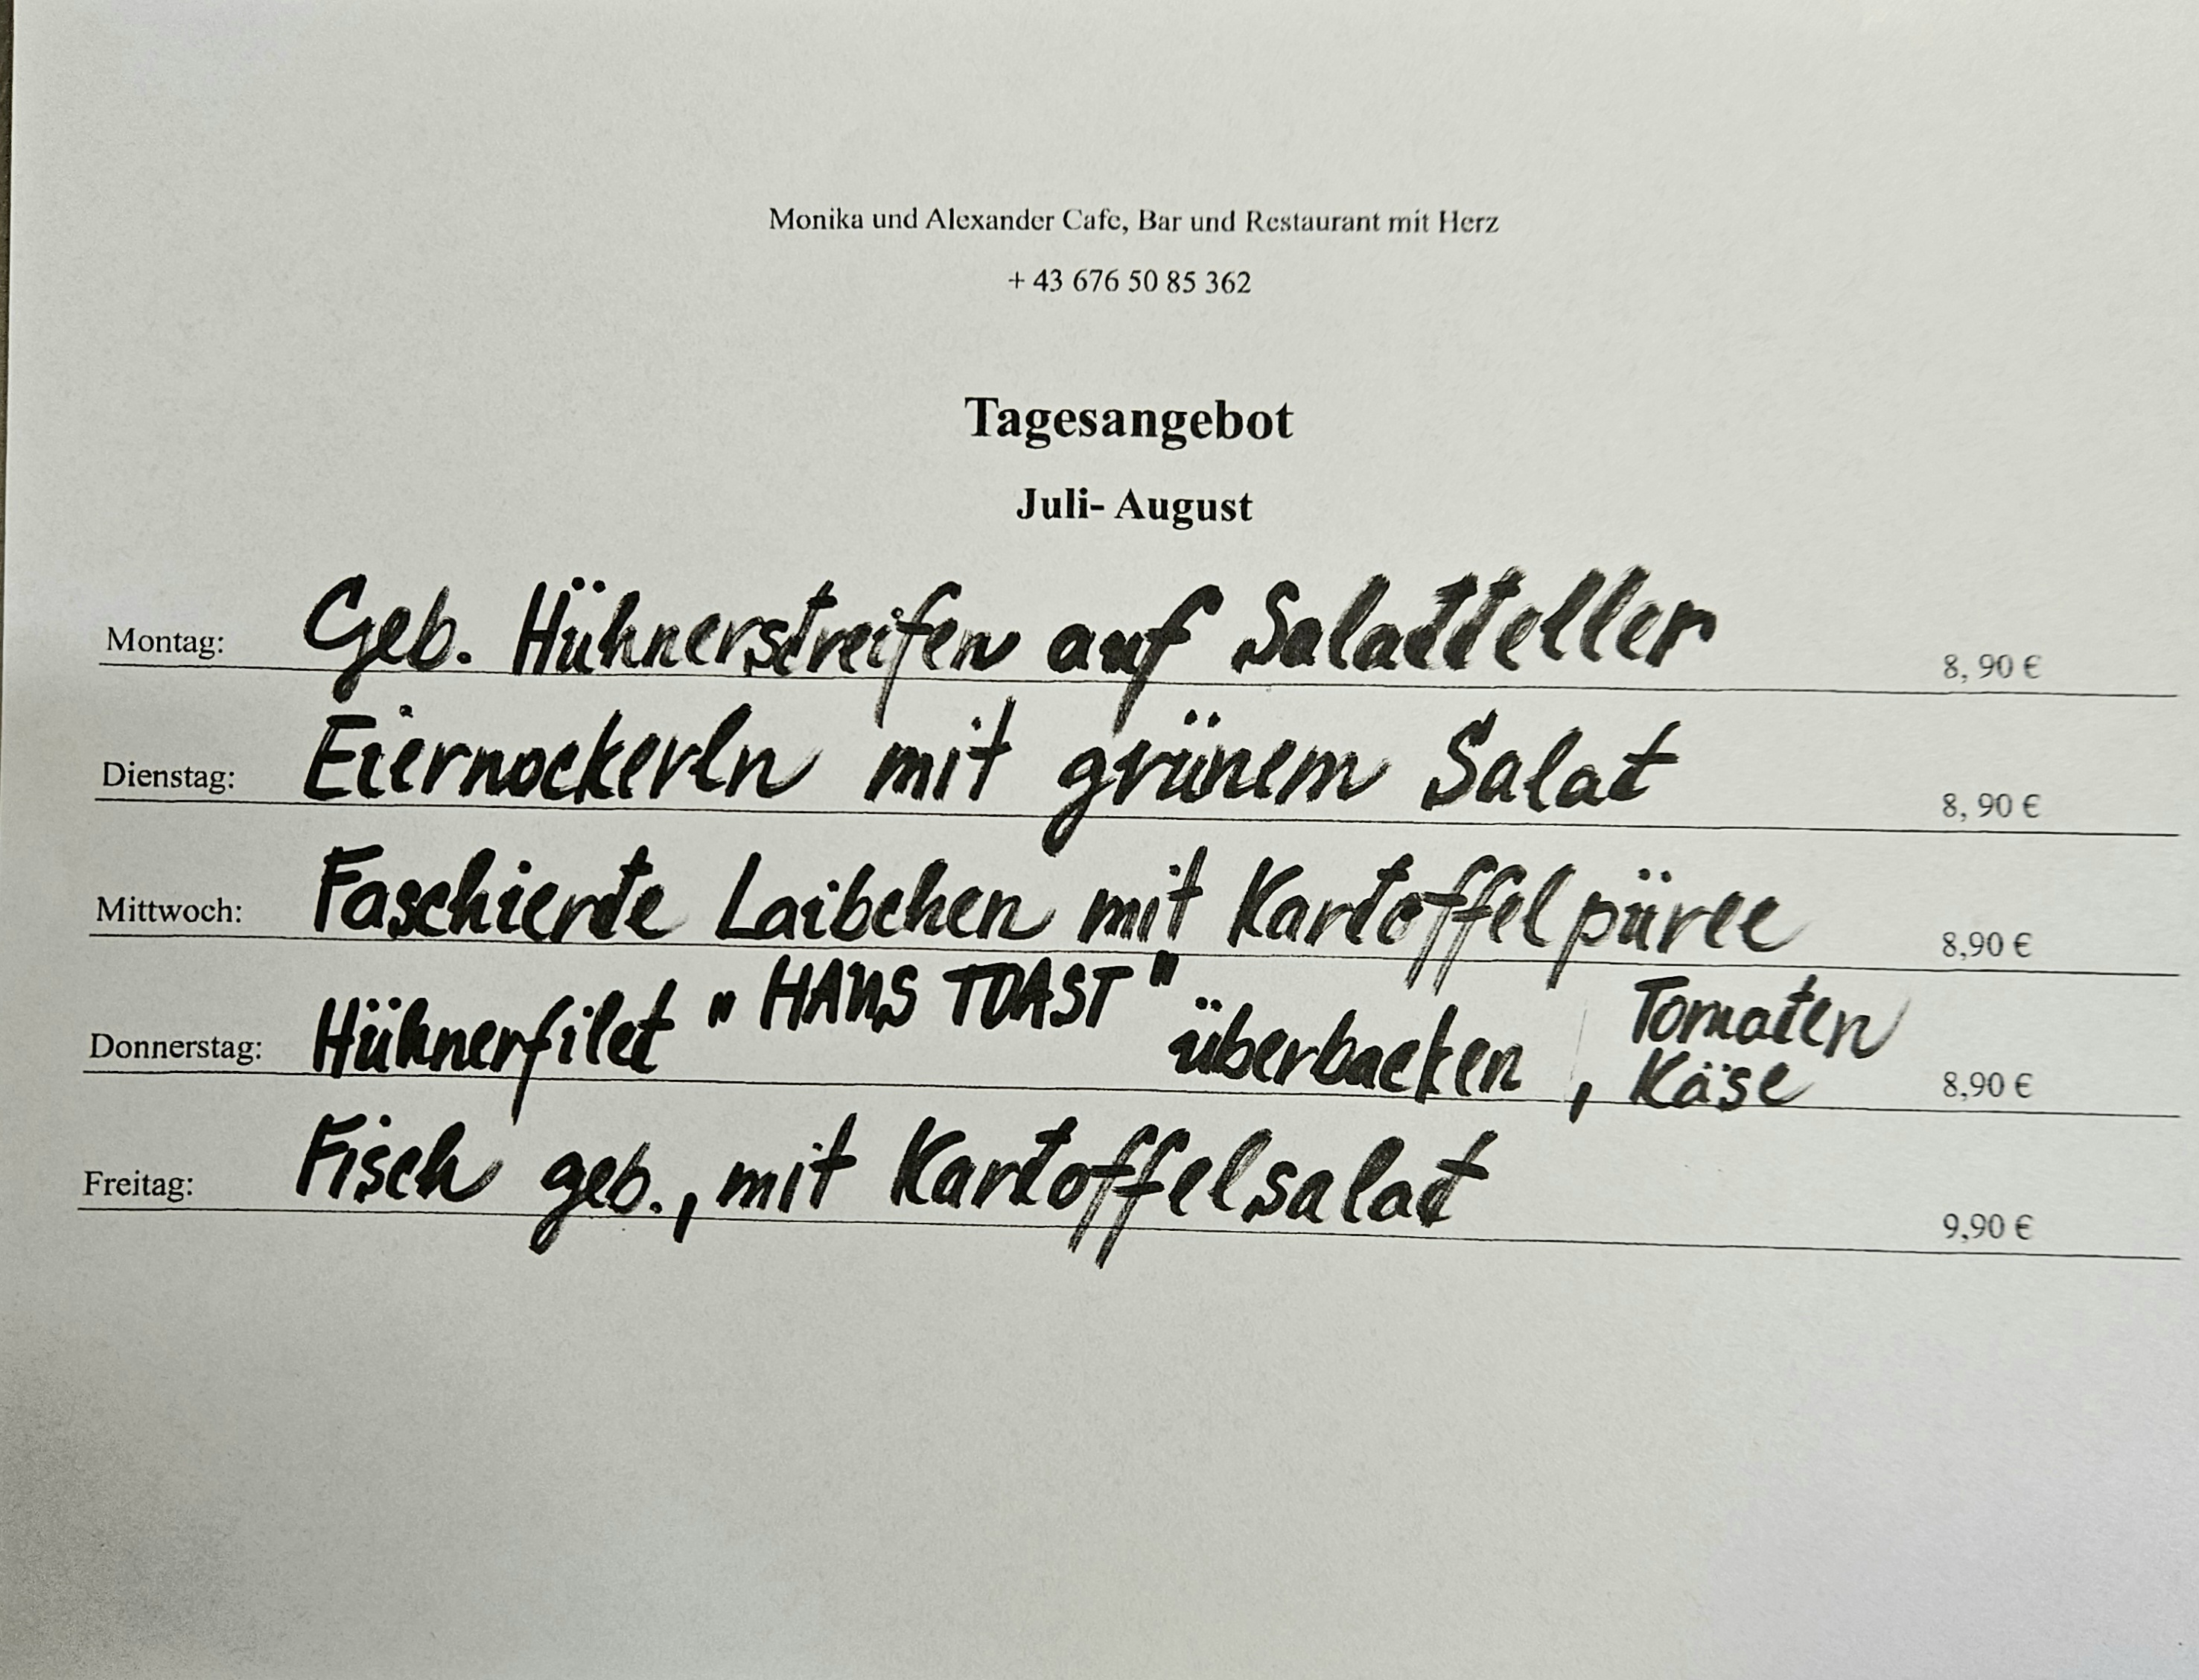 Monika und Alexander Cafe, Bar und Restaurant mit Herz
+ 43 676 50 85 362
Tagesangebot
Juli- August
Montag: Geb. Hühnerstreifen auf Salatteller 8, 90 €
Dienstag: Eiernockerln mit grünem Salat 8, 90 €
Mittwoch: Faschierte Laibchen mit Kartoffelpüree 8,90 €
Donnerstag: Hühnerfilet "HAUS TOAST" überbacken, Tomaten Käse 8,90 €
Freitag: Fisch geb., mit Kartoffelsalat 9,90 €